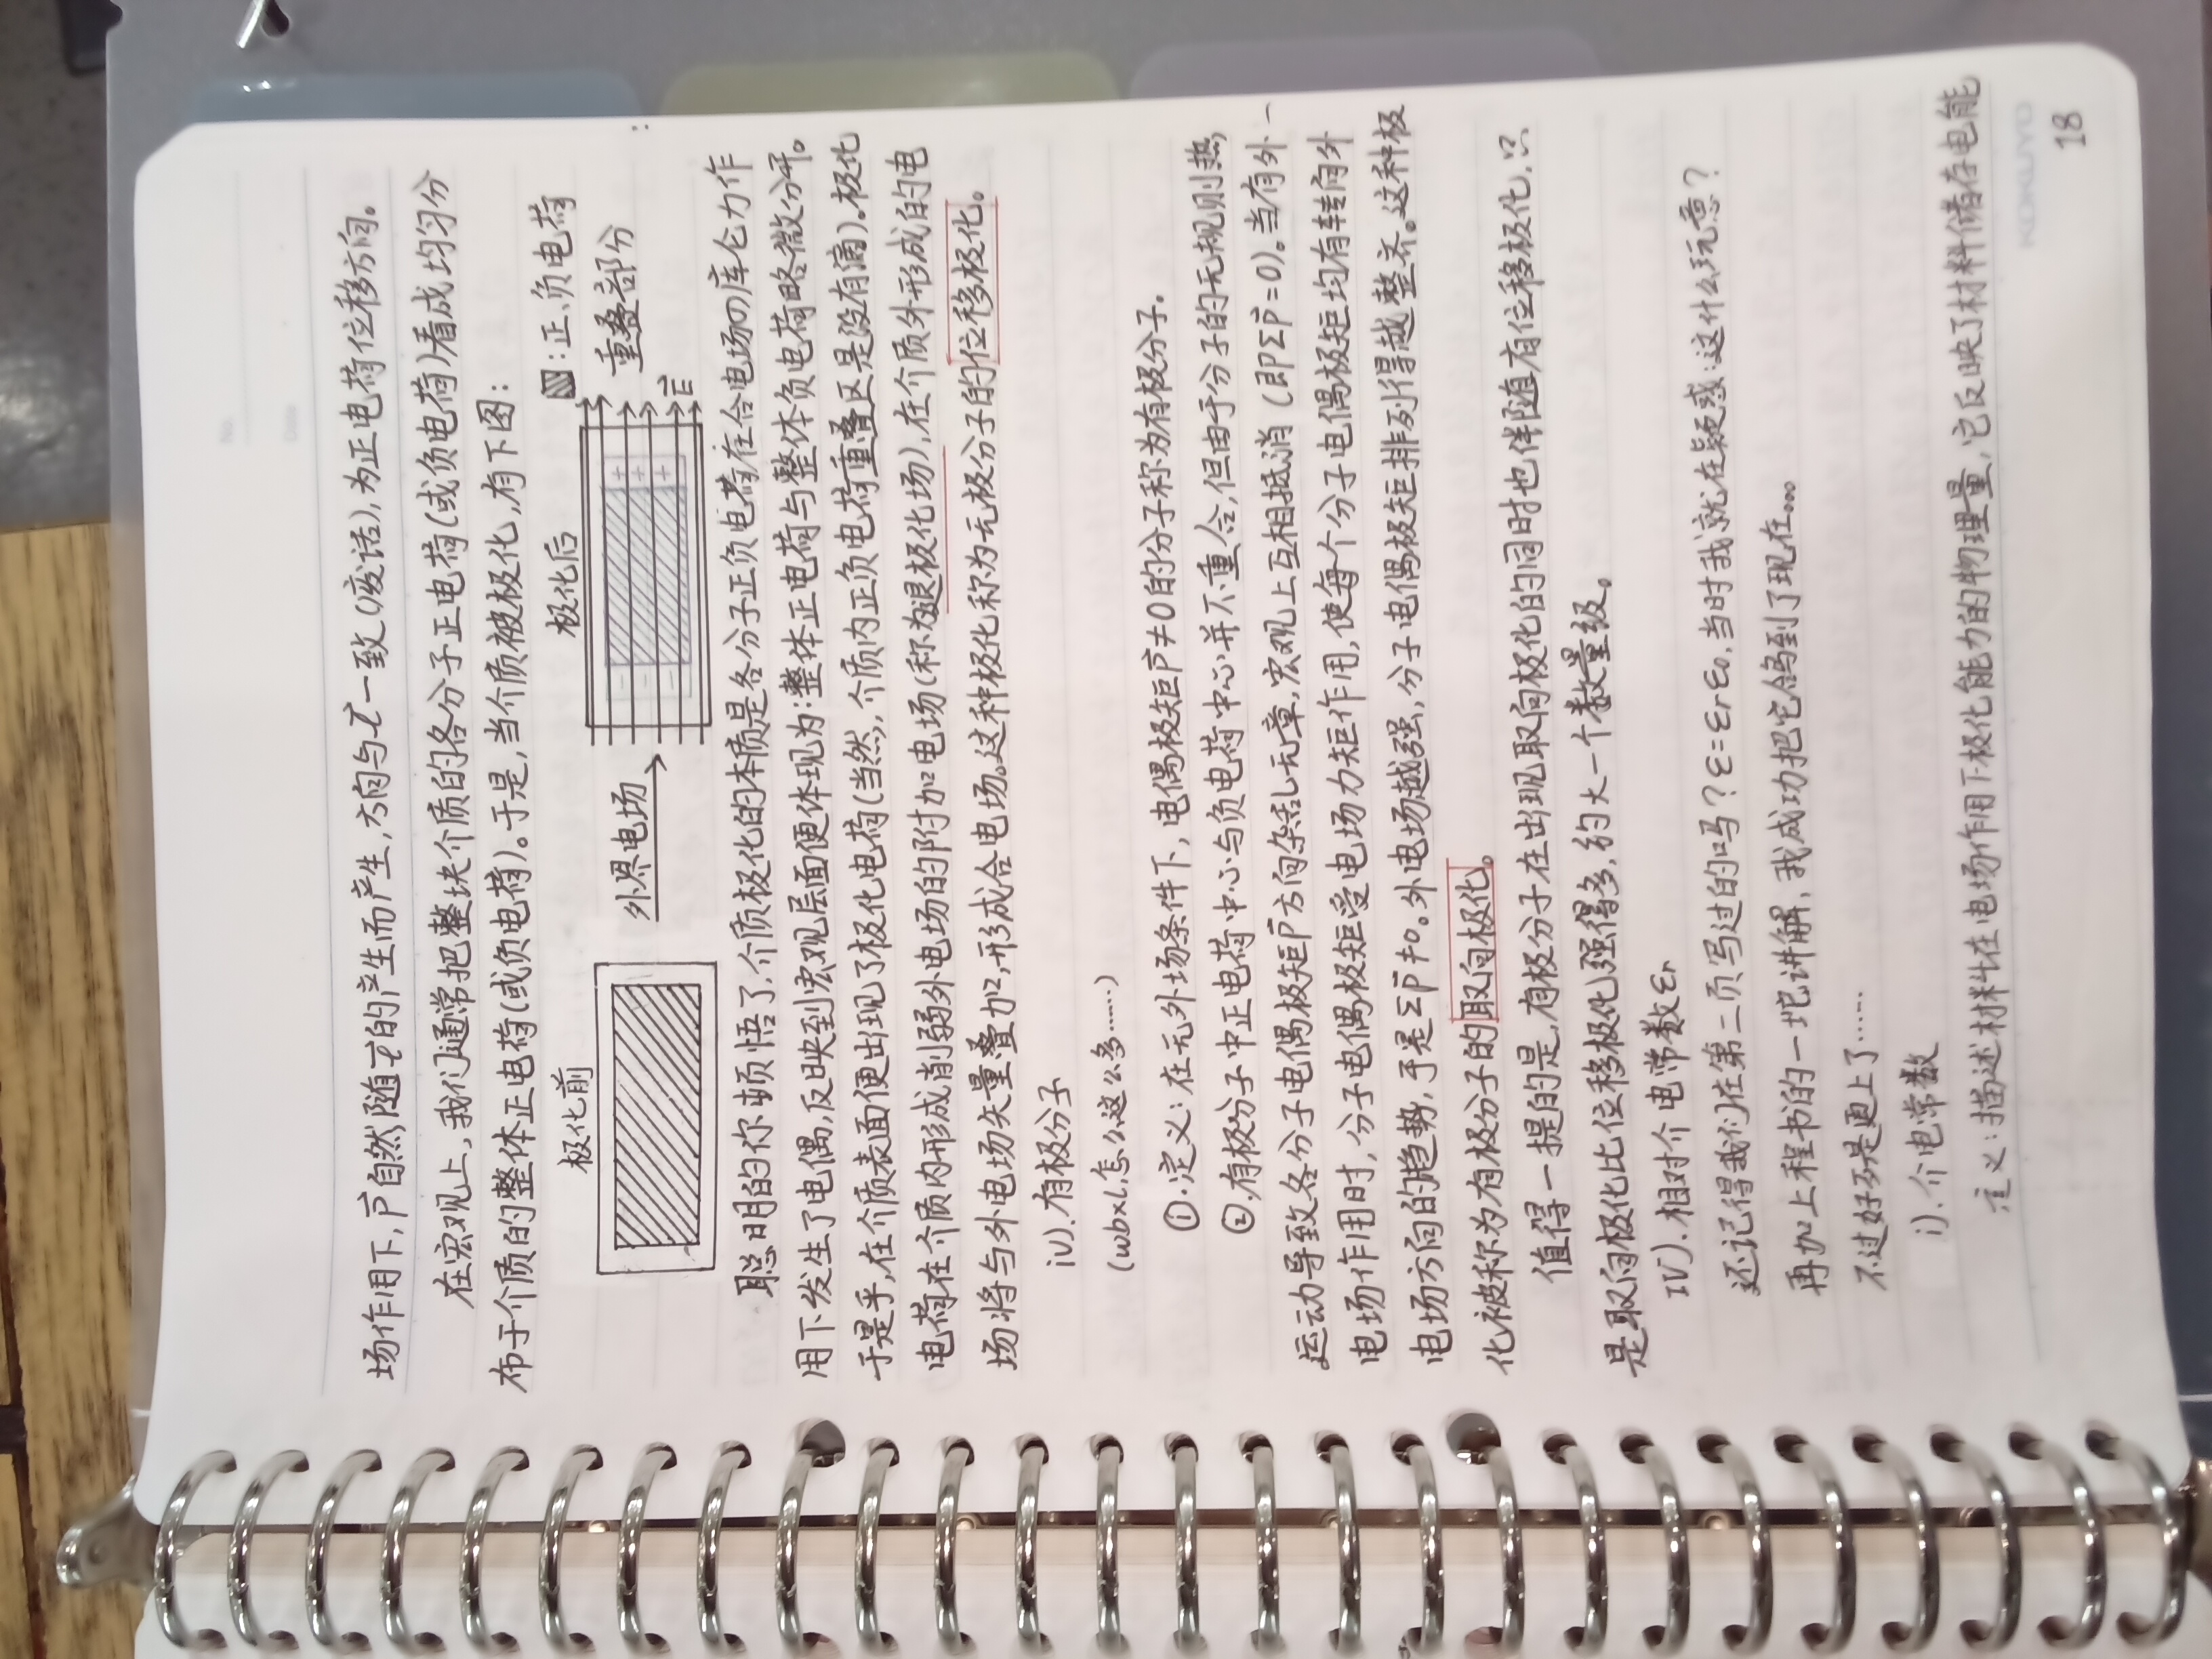 No.
Date
场作用下,p⃗自然随l⃗的产生而产生,方向与l⃗一致(废话),为正电荷位移方向。
在宏观上,我们通常把整块介质的各分子正电荷(或负电荷)看成均匀分
布于介质的整体正电荷(或负电荷)。于是,当介质被极化,有下图:
极化前
外界电场
极化后
:正、负电荷
重叠部分
E⃗
- - -
+ + +
聪明的你顿悟了,介质极化的本质是各分子正负电荷在合电场の库仑力作
用下发生了电偶,反映到宏观层面便体现为:整体正电荷与整体负电荷略微分开。
于是乎,在介质表面便出现了极化电荷(当然,介质内正负电荷重叠区是没有滴)。极化
电荷在介质内形成削弱外电场的附加电场(称为退极化场),在介质外形成的电
场将与外电场矢量叠加,形成合电场。这种极化称为无极分子的位移极化。
iv).有极分子
(wbxl,怎么这么多……)
①.定义:在无外场条件下,电偶极矩p⃗≠0的分子称为有极分子.
②.有极分子中正电荷中心与负电荷中心并不重合,但由于分子的无规则热
运动导致各分子电偶极矩p⃗方向杂乱无章,宏观上互相抵消(即Σp⃗=0)。当有外
电场作用时,分子电偶极矩受电场力矩作用,使每个分子电偶极矩均有转向外
电场方向的趋势,于是Σp⃗≠0。外电场越强,分子电偶极矩排列得越整齐。这种极
化被称为有极分子的取向极化。
值得一提的是,有极分子在出现取向极化的同时也伴随有位移极化,只
是取向极化比位移极化强得多,约大一个数量级。
IV).相对介电常数εr
还记得我们在第二页写过的吗?ε=εrε0,当时我就在疑惑:这什么玩意?
再加上程书的一坨讲解,我成功把它鸽到了现在...
不过好歹是更上了……
i).介电常数
定义:描述材料在电场作用下极化能力的物理量,它反映了材料储存电能
KOKUYO
18